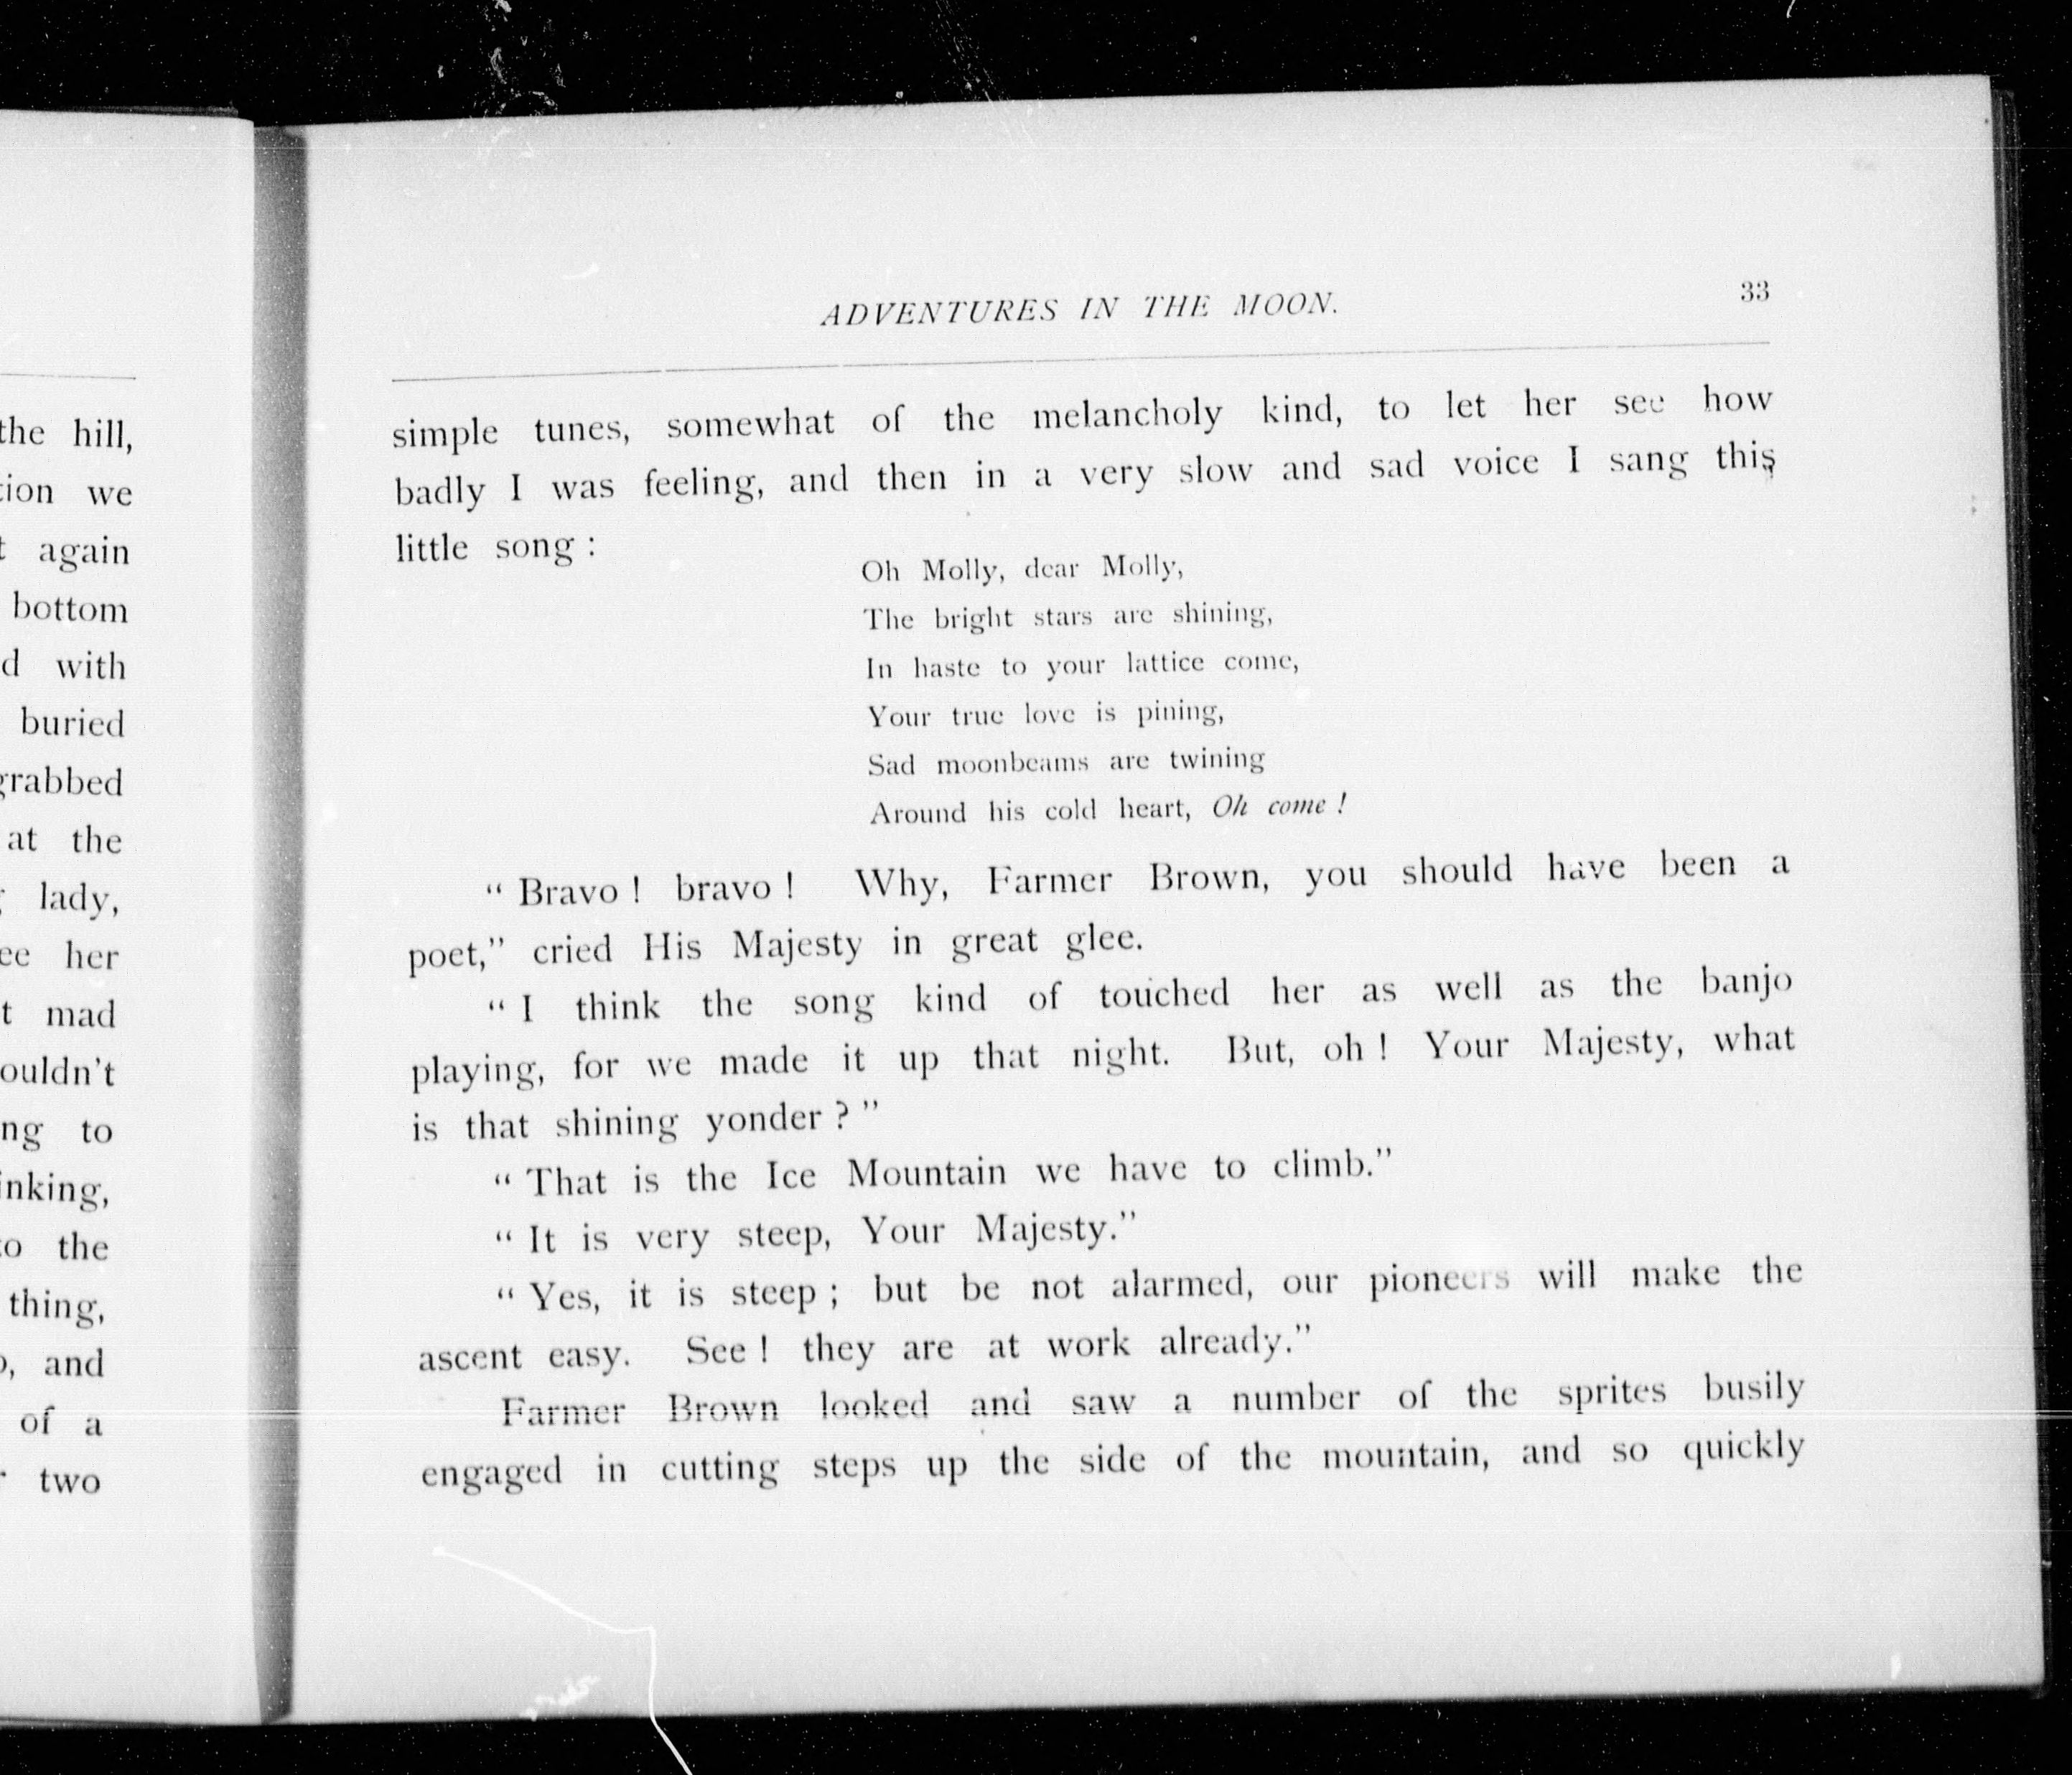 the hill,
we
again
bottom
with
buried
grabbed
at the
lady,
her
mad
to
the
thing,
and
of a
two
ADVENTURES IN THE MOON.
33
simple tunes, somewhat of the melancholy kind, to let her see how
badly I was feeling, and then in a very slow and sad voice I sang this
little song :
Oh Molly, dear Molly,
The bright stars are shining,
In haste to your lattice come,
Your true love is pining,
Sad moonbeams are twining
Around his cold heart, Oh come !
“ Bravo ! bravo ! Why, Farmer Brown, you should have been a
poet,” cried His Majesty in great glee.
“ I think the song kind of touched her as well as the banjo
playing, for we made it up that night. But, oh ! Your Majesty, what
is that shining yonder ? ”
“ That is the Ice Mountain we have to climb.”
“ It is very steep, Your Majesty.”
“ Yes, it is steep ; but be not alarmed, our pioneers will make the
ascent easy. See ! they are at work already.”
Farmer Brown looked and saw a number of the sprites busily
engaged in cutting steps up the side of the mountain, and so quickly